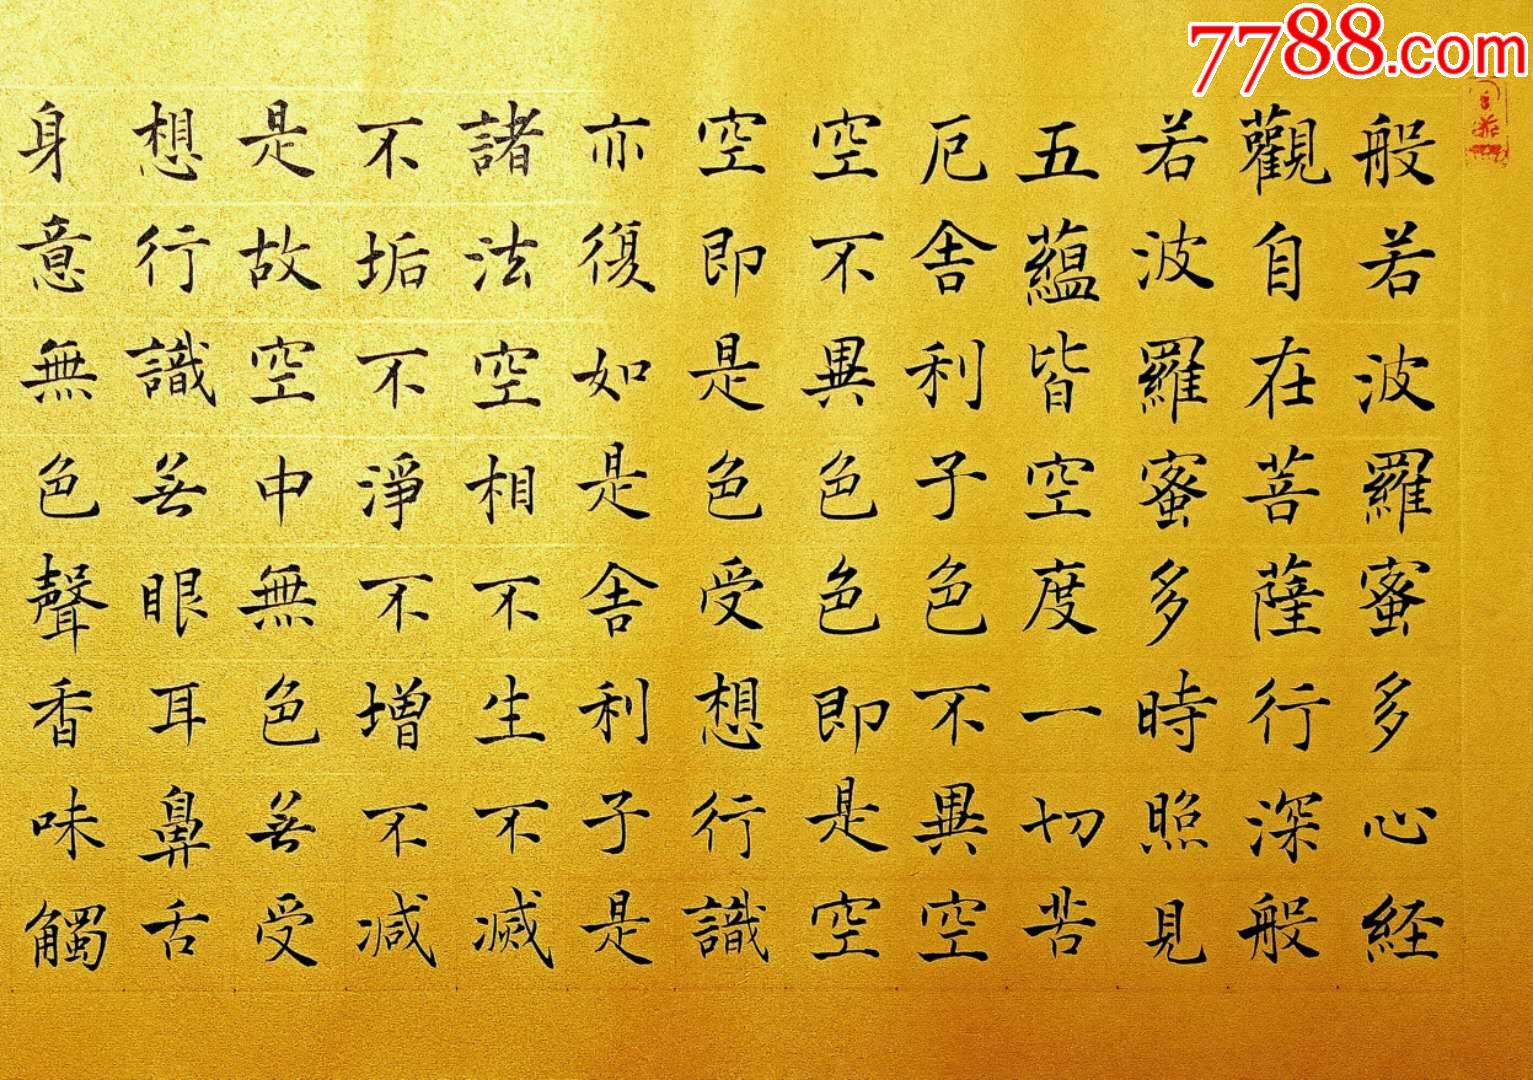 7788.com
般若波羅蜜多心経
觀自在菩薩行深般
若波羅蜜多時照見
五蘊皆空度一切苦
厄舍利子色不異空
空不異色色即是空
空即是色受想行識
亦復如是舍利子是
諸法空相不生不滅
不垢不淨不增不減
是故空中無色無受
想行識無眼耳鼻舌
身意無色聲香味觸